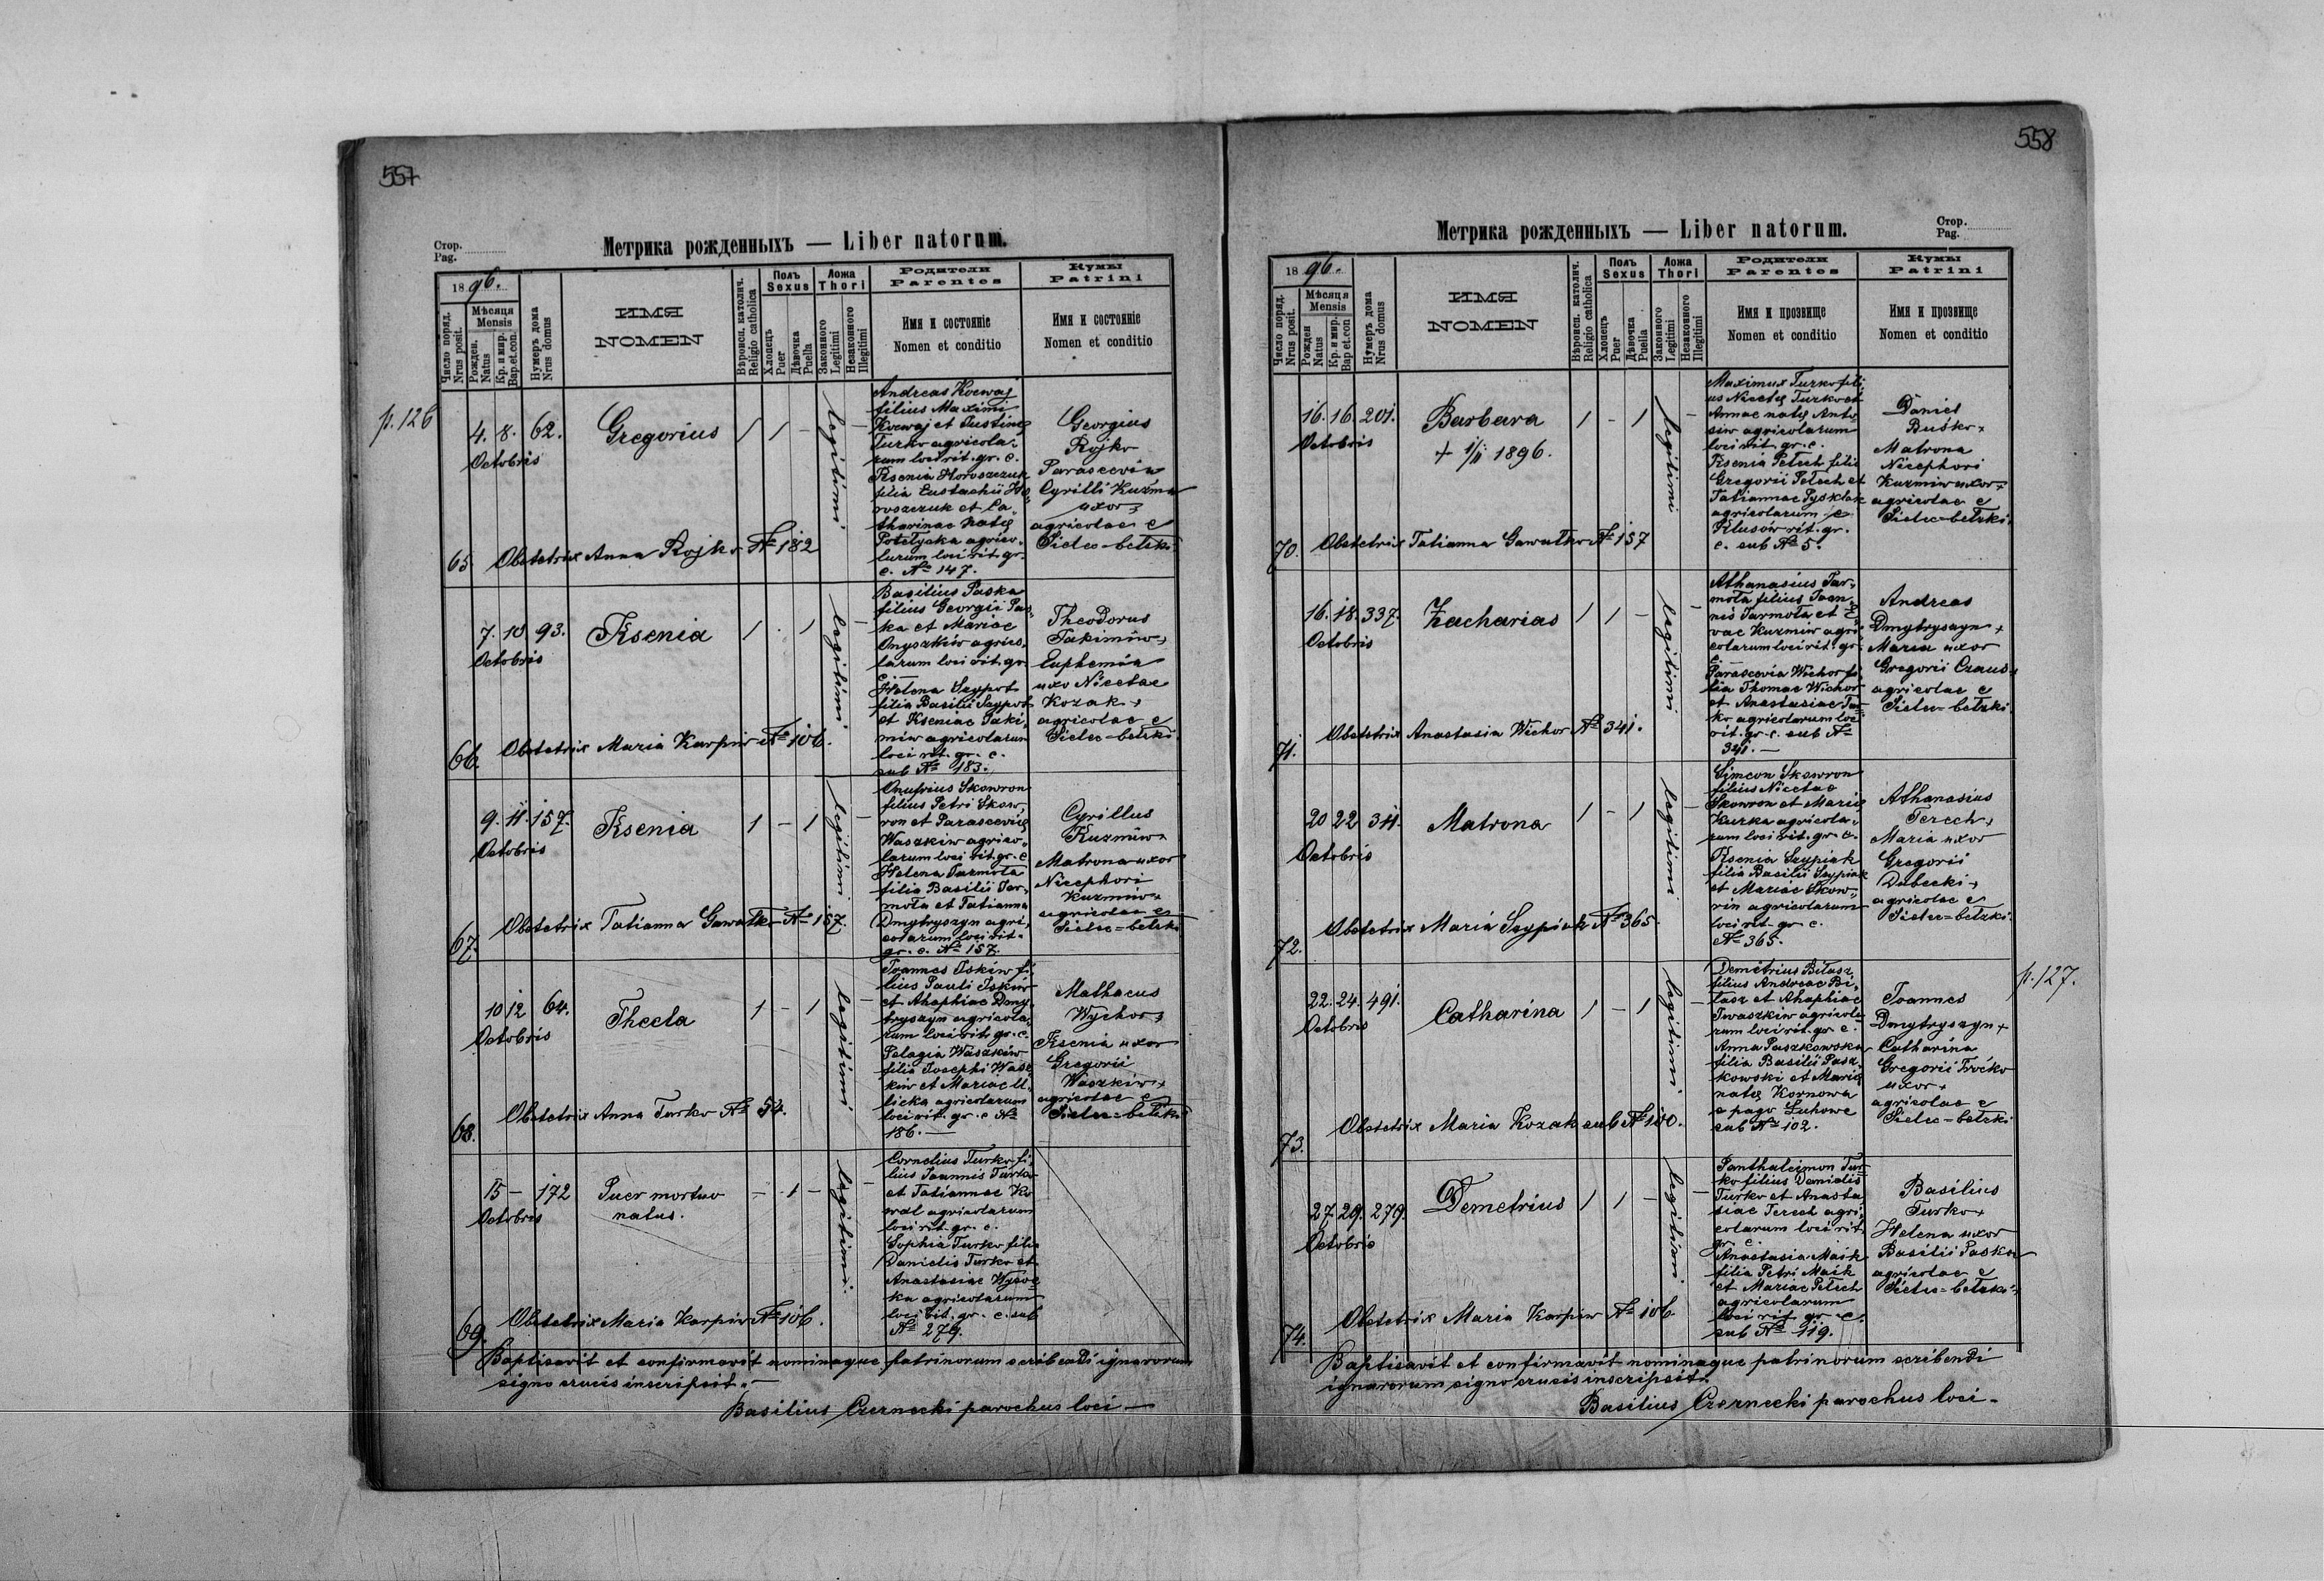 557
Стор.
Pag.
Метрика рожденныхъ — Liber natorum.
1896.
Число поряд.
Nrus posit.
Мѣсяця
Mensis
Рожден.
Natus
Кр. и мир.
Bap.et.con.
Нумеръ дома
Nrus domus
ИМЯ
NOMEN
Вѣроисп. католич.
Religio catholica
Полъ
Sexus
Хлопецъ
Puer
Дѣвочка
Puella
Ложа
Thori
Законного
Legitimi
Незаконного
Illegitimi
Родители
Parentes
Имя и состояніе
Nomen et conditio
Кумы
Patrini
Имя и состояніе
Nomen et conditio
p. 126
65
4. 8. 62.
Octobris
Gregorius
1 1 -
legitimi
Andreas Kocwaj
filius Maximi
Kocwaj et Justinę
Turko agricola-
rum loci rit. gr. c.
Ksenia Horoszczuk
filia Eustachii Ho-
roszczuk et Ca-
tharinae natę
Potełycka agrico-
larum loci rit. gr.
c. № 147.
Georgius
Rojko
Parascevia
Cyrilli Kuzmn
uxor +
agricolae e
Sielec=bełzki
Obstetrix Anna Rojko № 182
66.
7. 10. 93.
Octobris
Ksenia
1 . 1
legitimi
Basilius Paska
filius Georgii Pas-
ka et Mariae
Onyszkiw agrico-
larum loci rit. gr.
c. —
Helena Szypot
filia Basilii Szypot
et Kseniae Jaki-
miw agricolarum
loci rit. gr. c.
sub № 183.
Theodorus
Jakimiw +
Euphemia
uxo Nicetae
Kozak +
agricolae e
Sielec=bełzki
Obstetrix Maria Karpiw № 106.
67.
9. 11. 157.
Octobris
Ksenia
1 - 1
legitimi
Onufrius Skowron
filius Petri Skow-
ron et Parascevię
Waszkiw agrico-
larum loci rit. gr. c
Helena Jarmoła
filia Basilii Jar-
moła et Tatianna
Dmytryszyn agri-
colarum loci rit.
gr. c. № 157.
Cyrillus
Kuzmiw +
Matrona uxor
Nicephori
Kuzmiw +
agricolae e
Sielec=bełzki
Obstetrix Tatianna Gawałko № 157.
68.
10 12 64.
Octobris
Thecla
1 - 1
legitimi
Joannes Iskiw fi-
lius Pauli Iskiw
et Ahaphiae Dmy-
tryszyn agricola-
rum loci rit. gr. c.
Pelagia Waszkiw
filia Josephi Wasz-
kiw et Mariae U-
licka agricolarum
loci rit. gr. c №
186. —
Mathaeus
Wychor +
Ksenia uxor
Gregorii
Waszkiw +
agricolae e
Sielec=bełzki
Obstetrix Anna Turko № 54.
69.
15 — 172
Octobris
Puer mortuo
natus.
- 1 -
legitimi
Cornelius Turko fi-
lius Joannis Turko
et Tatiannae Ko
wal agricolarum
loci rit. gr. c.
Sophia Turko filia
Danielis Turko et
Anastasiae Wysoc-
ka agricolarum
loci rit. gr. c. sub
№ 279.
Obstetrix Maria Karpiw № 106.
Baptisavit et confirmavit nominaque patrinorum scribendi ignarorum
signo crucis inscripsit. —
Basilius Czernecki parochus loci —
558
Стор.
Pag.
Метрика рожденныхъ — Liber natorum.
1896.
Число поряд.
Nrus posit.
Мѣсяця
Mensis
Рожден
Natus
Кр. и мир.
Bap et.con
Нумеръ дома
Nrus domus
ИМЯ
NOMEN
Вѣроисп. католич.
Religio catholica
Полъ
Sexus
Хлопецъ
Puer
Дѣвочка
Puella
Ложа
Thori
Законного
Legitimi
Незаконного
Illegitimi
Родители
Parentes
Имя и прозвище
Nomen et conditio
Кумы
Patrini
Имя и прозвище
Nomen et conditio
70.
16. 16. 201.
Octobris
Barbara
+ 1/11 1896.
1 - 1
legitimi
Maximus Turko fili-
us Nicetę Turko et
Annae natę Anto-
siw agricolarum
loci rit. gr. c.
Ksenia Petech filia
Gregorii Petech et
Tatiannae Pysklak
agricolarum e
Klusów rit. gr.
c. sub № 5.
Daniel
Buśko +
Matrona
Nicephori
Kuzmiw uxor +
agricolae e
Sielec=bełzki
Obstetrix Tatianna Gawałko № 157
71.
16. 18. 337.
Octobris
Zacharias
1 1 -
legitimi
Athanasius Jar-
moła filius Joan-
nis Jarmoła et E-
vae Kuzmiw agri-
colarum loci rit. gr.
c. —
Parascevia Wichor fi-
lia Thomae Wichor
et Anastasiae Tur-
ko agricolarum loci
rit. gr. c. sub №
341. —
Andreas
Dmytryszyn +
Maria uxor
Gregorii Czaus +
agricolae e
Sielec=bełzki
Obstetrix Anastasia Wichor № 341.
72.
20 22 311.
Octobris
Matrona
1 - 1
legitimi
Simeon Skowron
filius Nicetae
Skowron et Marię
Kurka agricola-
rum loci rit. gr. c.
Ksenia Szypiak
filia Basilii Szypiak
et Mariae Skow-
rin agricolarum
loci rit. gr. c.
№ 365.
Athanasius
Terech +
Maria uxor
Gregorii
Dubecki +
agricolae e
Sielec=bełzki
Obstetrix Maria Szypiak № 365.
p. 127.
73.
22. 24. 491.
Octobris
Catharina
1 - 1
legitimi
Demetrius Biłasz
filius Andreae Bi-
łasz et Ahaphiae
Iwaszkiw agricola-
rum loci rit. gr. c.
Anna Paszkowska
filia Basilii Pasz-
kowski et Marię
natę Kornowa
e pago Łuhowe
sub № 102.
Joannes
Dmytryszyn +
Catharina
Gregorii Troćko
uxor +
agricolae e
Sielec=bełzki
Obstetrix Maria Kozak sub № 100.
74.
27. 29. 279.
Octobris
Demetrius
1 1 -
legitimi
Panthaleimon Tur-
ko filius Danielis
Turko et Anasta-
siae Terech agri-
colarum loci rit.
gr. c.
Anastasia Maik
filia Petri Maik
et Mariae Petech
agricolarum
loci rit. gr. c.
sub № 119.
Basilius
Turko +
Helena uxor
Basilii Paska
agricolae e
Sielec=bełzki +
Obstetrix Maria Karpiw № 106.
Baptisavit et confirmavit nominaque patrinorum scribendi
ignarorum signo crucis inscripsit.
Basilius Czernecki parochus loci -